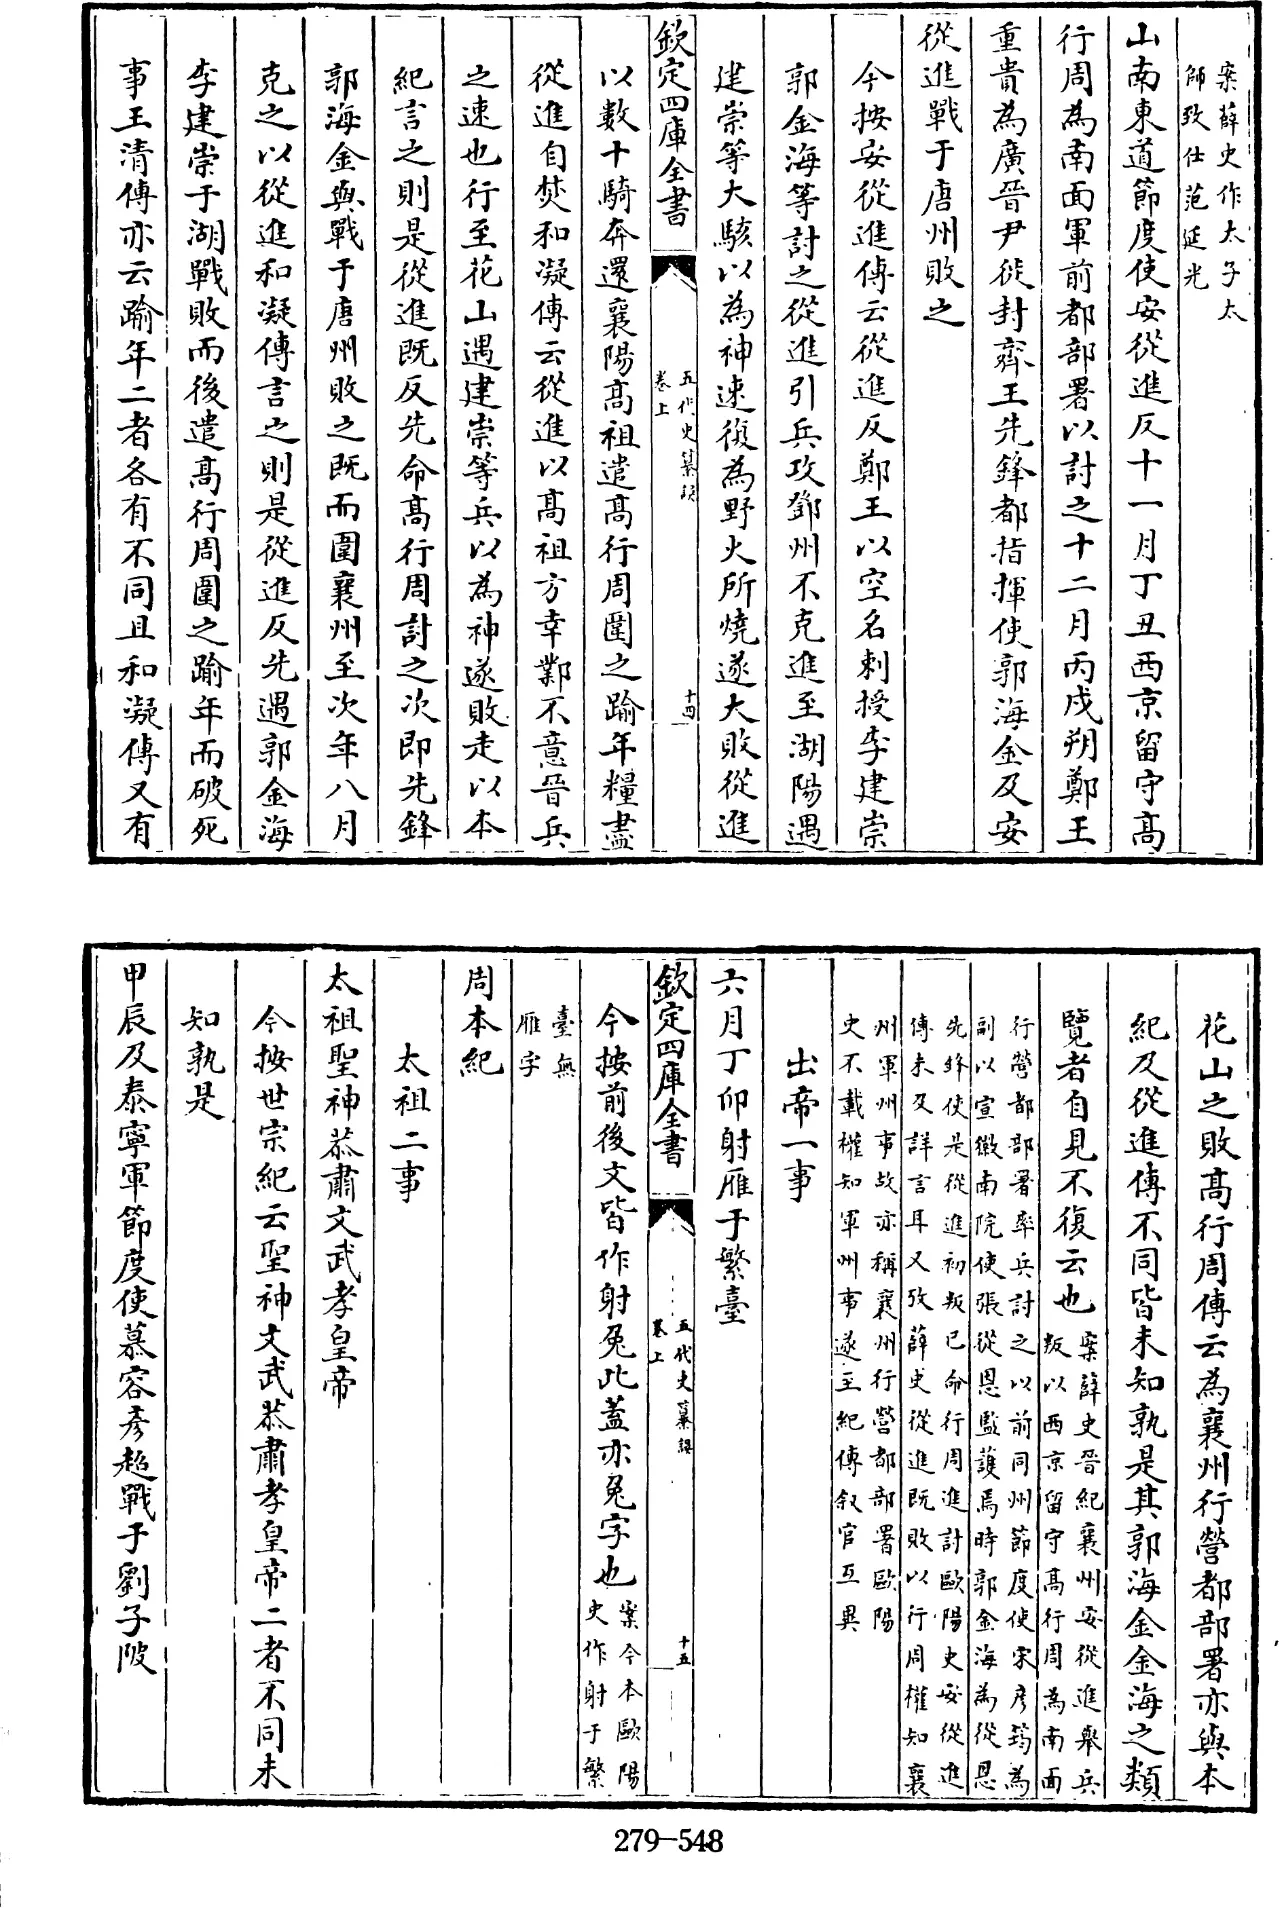 案薛史作太子太
師致仕范延光
山南東道節度使安從進反十一月丁丑西京留守高
行周為南面軍前都部署以討之十二月丙戌朔鄭王
重貴為廣晉尹徙封齊王先鋒都指揮使郭海金及安
從進戰于唐州敗之
今按安從進傳云從進反鄭王以空名刺授李建崇
郭金海等討之從進引兵攻鄧州不克進至湖陽遇
建崇等大駭以為神速復為野火所燒遂大敗從進
欽定四庫全書
五代史纂誤
卷上
十四
以數十騎奔還襄陽高祖遣高行周圍之踰年糧盡
從進自焚和凝傳云從進以高祖方幸鄴不意晉兵
之速也行至花山遇建崇等兵以為神遂敗走以本
紀言之則是從進既反先命高行周討之次即先鋒
郭海金與戰于唐州敗之既而圍襄州至次年八月
克之以從進和凝傳言之則是從進反先遇郭金海
李建崇于湖戰敗而後遣高行周圍之踰年而破死
事王清傳亦云踰年二者各有不同且和凝傳又有
花山之敗高行周傳云為襄州行營都部署亦與本
紀及從進傳不同皆未知孰是其郭海金金海之類
覽者自見不復云也
案薛史晉紀襄州安從進舉兵
叛以西京留守高行周為南面
行營都部署率兵討之以前同州節度使宋彥筠為
副以宣徽南院使張從恩監護焉時郭金海為從恩
先鋒使是從進初叛已命行周進討歐陽史安從進
傳未及詳言耳又攷薛史從進既敗以行周權知襄
州軍州事故亦稱襄州行營都部署歐陽
史不載權知軍州事遂至紀傳叙官互異
出帝一事
六月丁卯射雁于繁臺
欽定四庫全書
五代史纂誤
卷上
十五
今按前後文皆作射兔此蓋亦兔字也
案今本歐陽
史作射于繁
臺無
雁字
周本紀
太祖二事
太祖聖神恭肅文武孝皇帝
今按世宗紀云聖神文武恭肅孝皇帝二者不同未
知孰是
甲辰及泰寧軍節度使慕容彥超戰于劉子陂
279-548